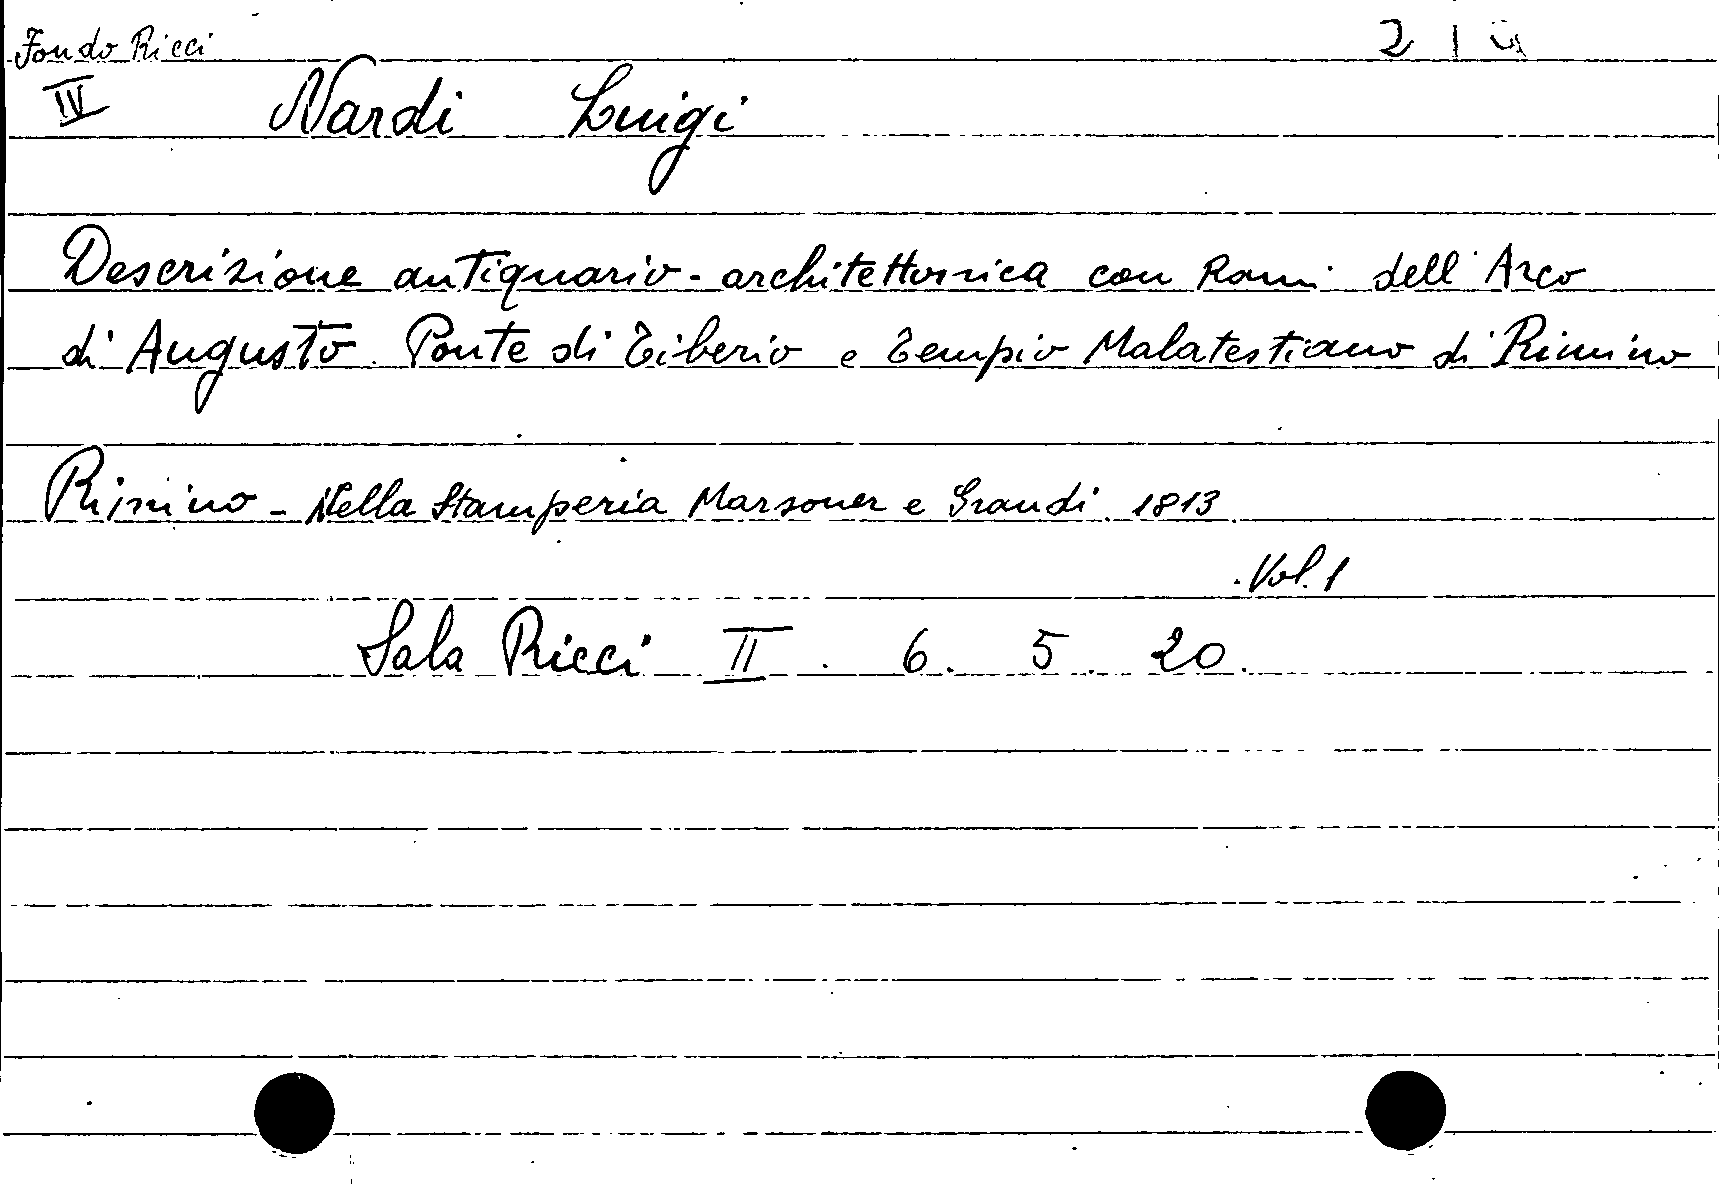 Fondo Ricci 2 1
IV Nardi Luigi
Descrizione antiquario-architettonica con Rami dell'Arco
di Augusto. Ponte di Tiberio e Tempio Malatestiano di Rimino
Rimino - Nella Stamperia Marsoner e Grandi. 1813.
Vol. 1
Sala Ricci II. 6. 5. 20.